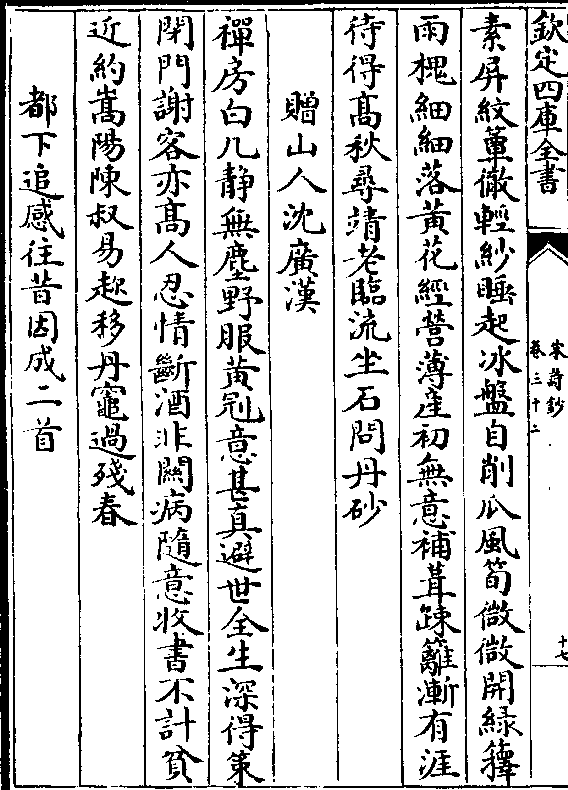 欽定四庫全書
宋詩鈔
卷三十二
十七
素屏紋簟徹輕紗睡起冰盤自削瓜風筍微微開緑籜
雨槐細細落黃花經營薄産初無意補葺踈籬漸有涯
待得髙秋尋靖老臨流坐石問丹砂
贈山人沈廣漢
禪房白几静無塵野服黃冠意甚真避世全生深得策
閉門謝客亦髙人忍情斷酒非闗病隨意收書不計貧
近約嵩陽陳叔易趂移丹竈過殘春
都下追感往昔因成二首